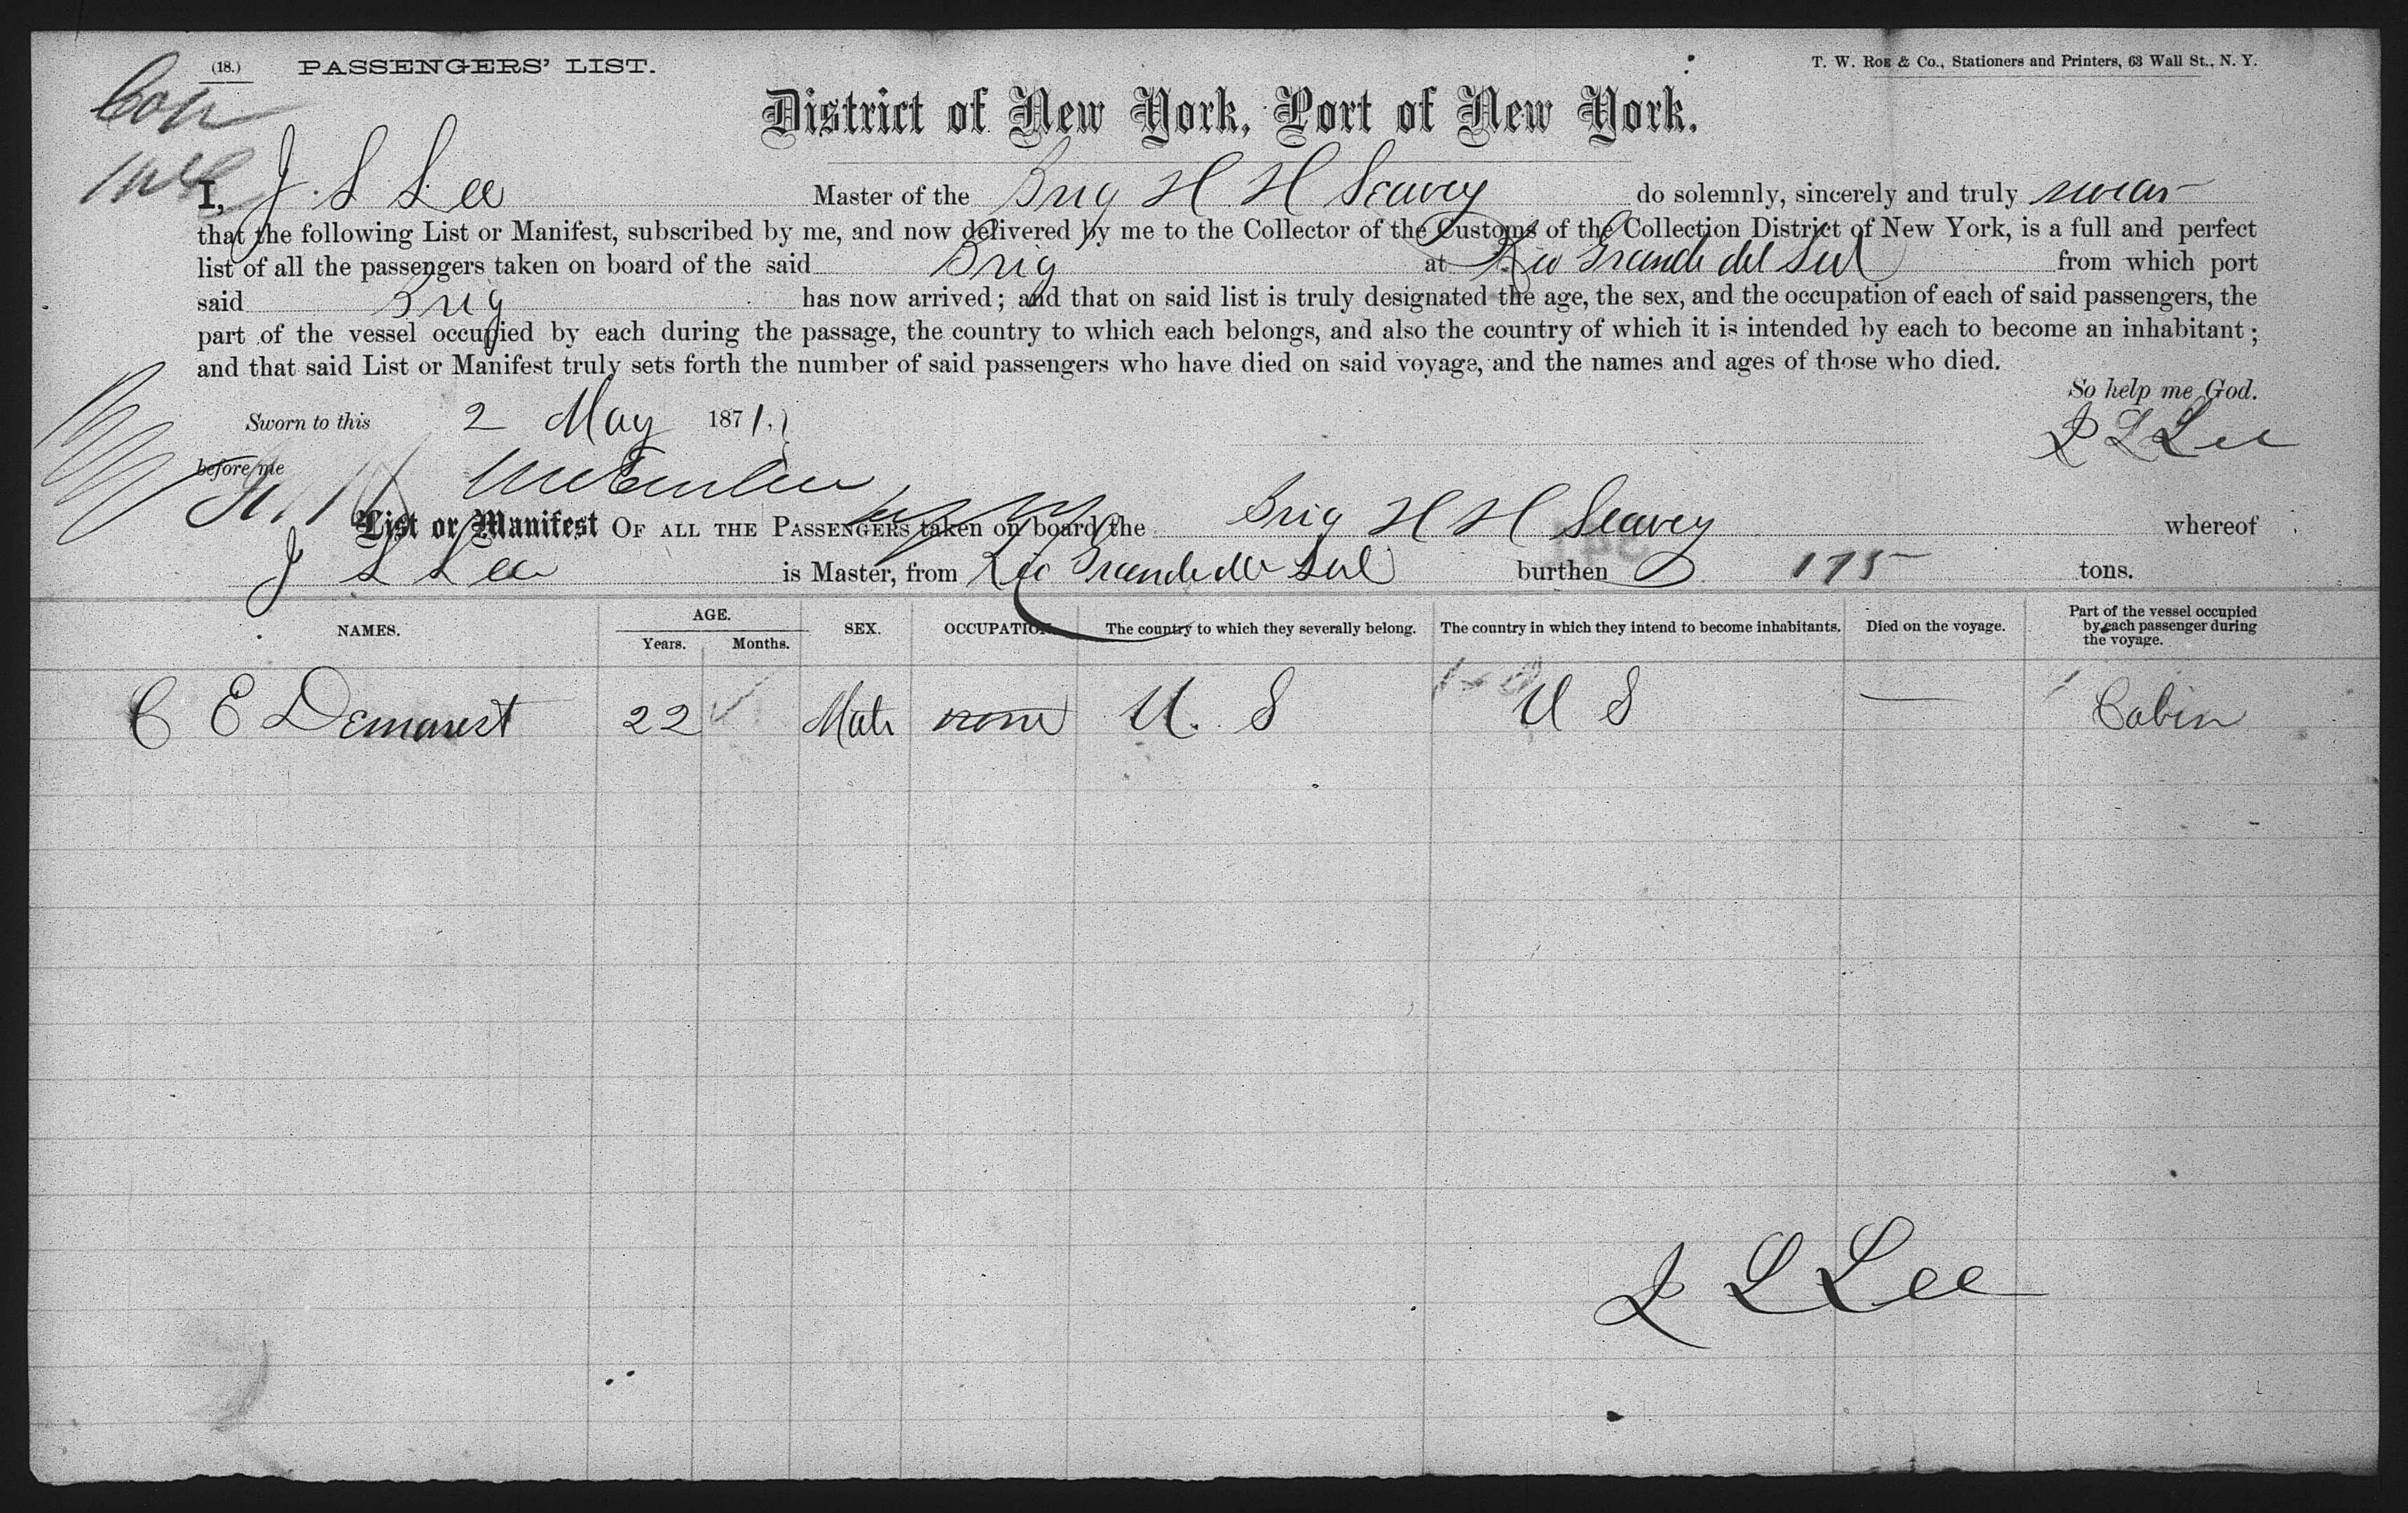 (18.) PASSENGERS' LIST.
T. W. Roe & Co., Stationers and Printers, 63 Wall St., N. Y.
District of New York, Port of New York.
I, J. S Lee Master of the Brig H H Seavey do solemnly, sincerely and truly swear
that the following List or Manifest, subscribed by me, and now delivered by me to the Collector of the Customs of the Collection District of New York, is a full and perfect
list of all the passengers taken on board of the said Brig at Rio Grande del Sul from which port
said Brig has now arrived; and that on said list is truly designated the age, the sex, and the occupation of each of said passengers, the
part of the vessel occupied by each during the passage, the country to which each belongs, and also the country of which it is intended by each to become an inhabitant;
and that said List or Manifest truly sets forth the number of said passengers who have died on said voyage, and the names and ages of those who died.
So help me God.
Sworn to this 2 May 1871.
L Lee
before me
List or Manifest OF ALL THE PASSENGERS taken on board the Brig H H Seavey whereof
J Lee is Master, from Rio Grande Sul burthen 175 tons.
NAMES. AGE. Years. Months. SEX. OCCUPATION. The country to which they severally belong. The country in which they intend to become inhabitants. Died on the voyage. Part of the vessel occupied by each passenger during the voyage.
C E Demarest 22 Male none U. S U S — Cabin
L Lee